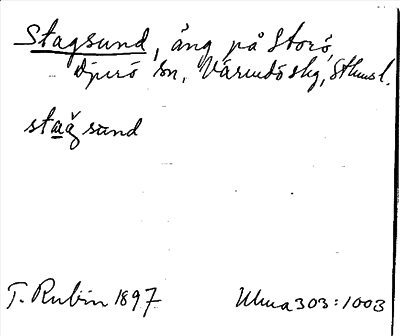 Stagsund, äng på Storö,
Djurö sn, Värmdö skg, Sthmsl.
stag sund
T. Rubin 1897 Uluma 303:1003